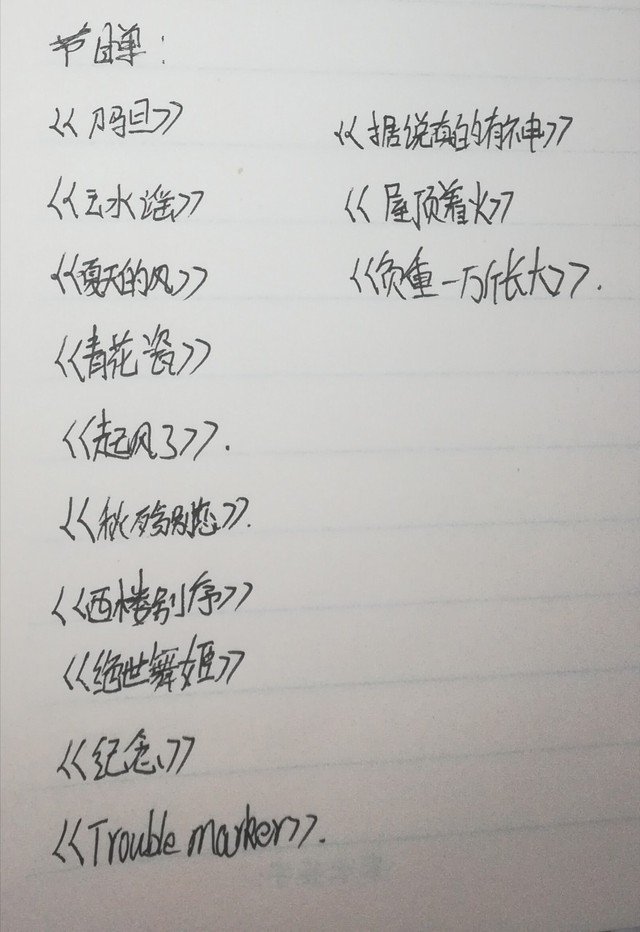 节目单:
<<刀马旦>>
<<云水谣>>
<<夏天的风>>
<<青花瓷>>
<<起风了>>.
<<秋殇别恋>>.
<<西楼别序>>
<<绝世舞姬>>
<<纪念>>
<<Trouble marker>>.
<<据说真的有神>>
<<屋顶着火>>
<<负重一万斤长大>>.